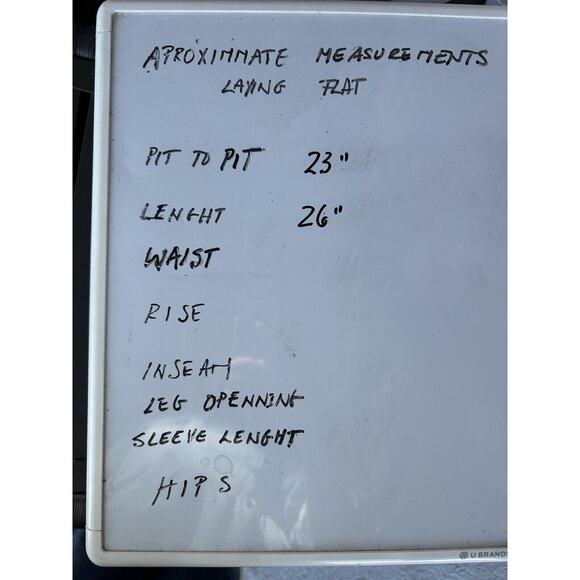 APROXIMMATE MEASUREMENTS
LAYING FLAT
PIT TO PIT 23"
LENGHT 26"
WAIST
RISE
INSEAM
LEG OPENNING
SLEEVE LENGHT
HIPS
U BRANDS